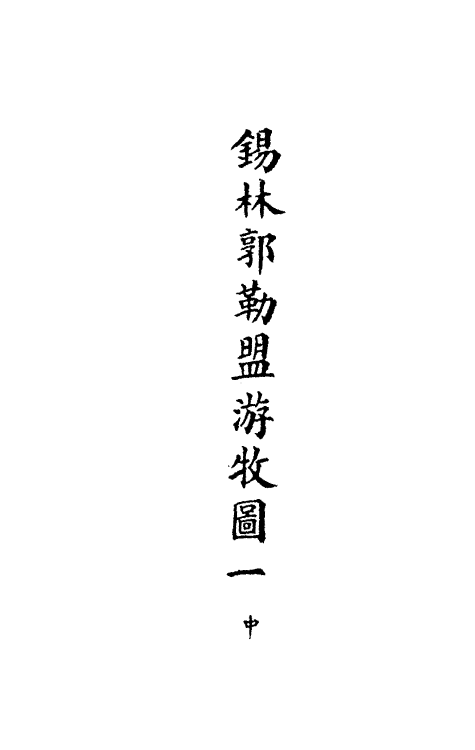 錫林郭勒盟游牧圖一中